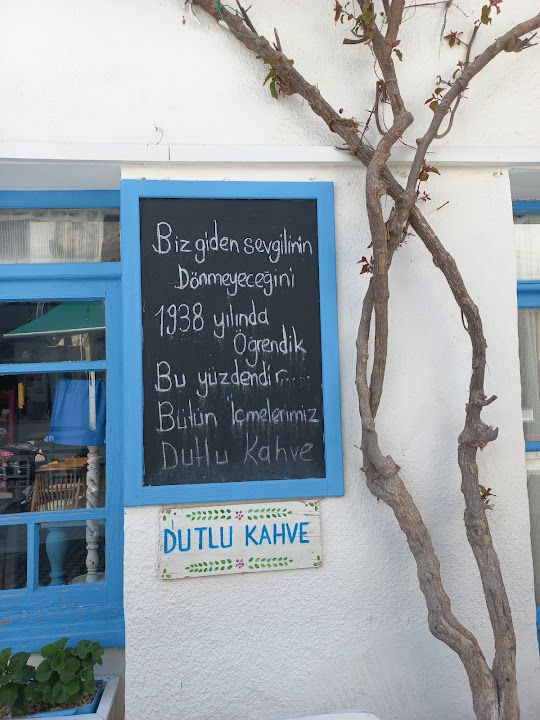 Biz giden sevgilinin
Dönmeyeceğini
1938 yılında
Öğrendik
Bu yüzdendir.....
Bütün İçmelerimiz
Dutlu Kahve
DUTLU KAHVE